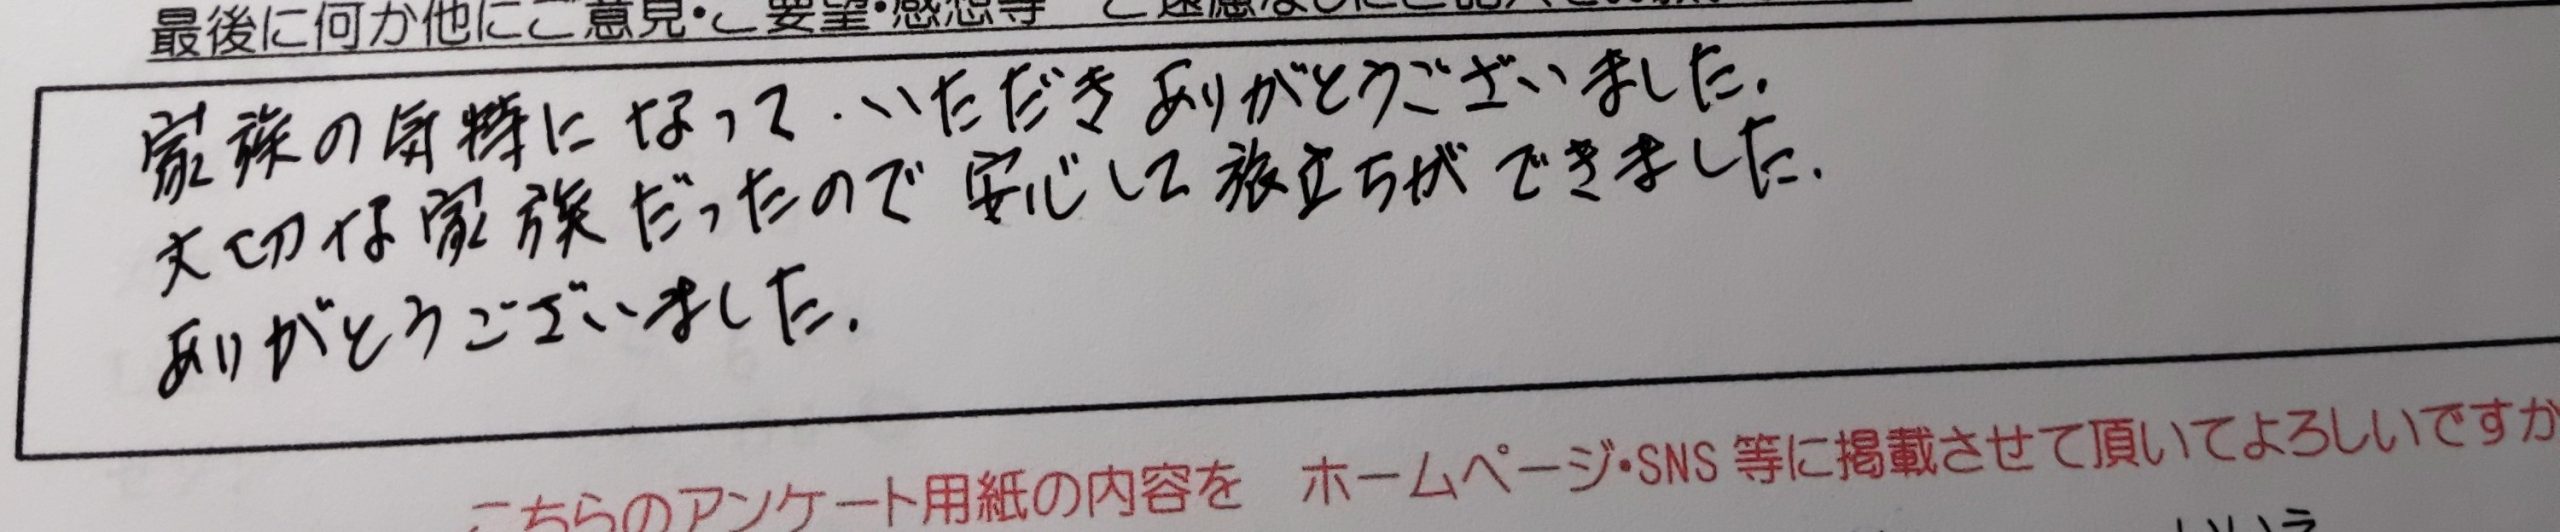 最後に何か他にご意見・ご要望・感想等 ご遠慮なしにご記入
家族の気持になって.いただきありがとうございました.
大切な家族だったので安心して旅立ちができました.
ありがとうございました.
こちらのアンケート用紙の内容を ホームページ・SNS等に掲載させて頂いてよろしいですか
いいえ